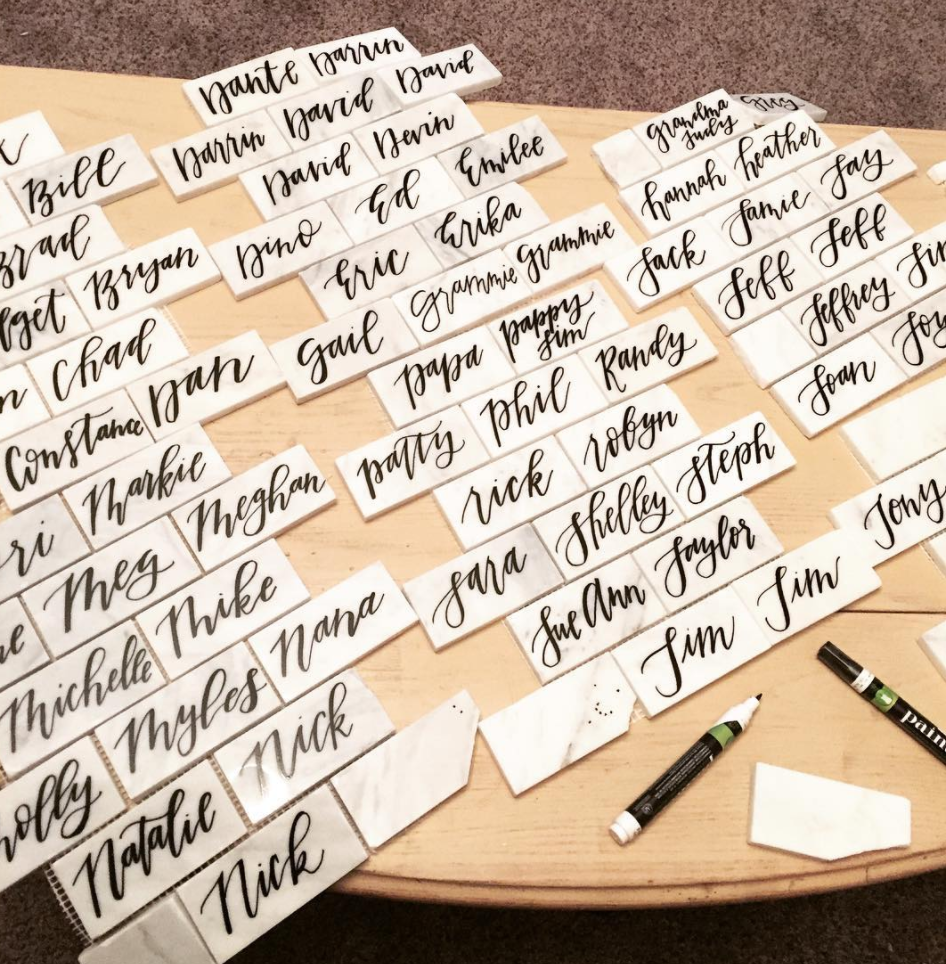 Dante
Darrin
David
Darrin
David
Devin
David
Emilee
Ed
Erika
Dino
Eric
Grammie
Grammie
Gail
Bill
Brad
Bryan
Chad
Dan
Constance
Grandma
Judy
Greg
hannah
heather
Jay
Jamie
Jack
Jeff
Jeff
Jeffrey
Joan
pappy
Jim
papa
Randy
phil
patty
robyn
rick
Steph
Shelley
Sara
Taylor
Sue Ann
Tim
Tim
Tony
Markie
Meghan
Meg
Mike
Michelle
Nana
Myles
Nick
Natalie
Nick
pain